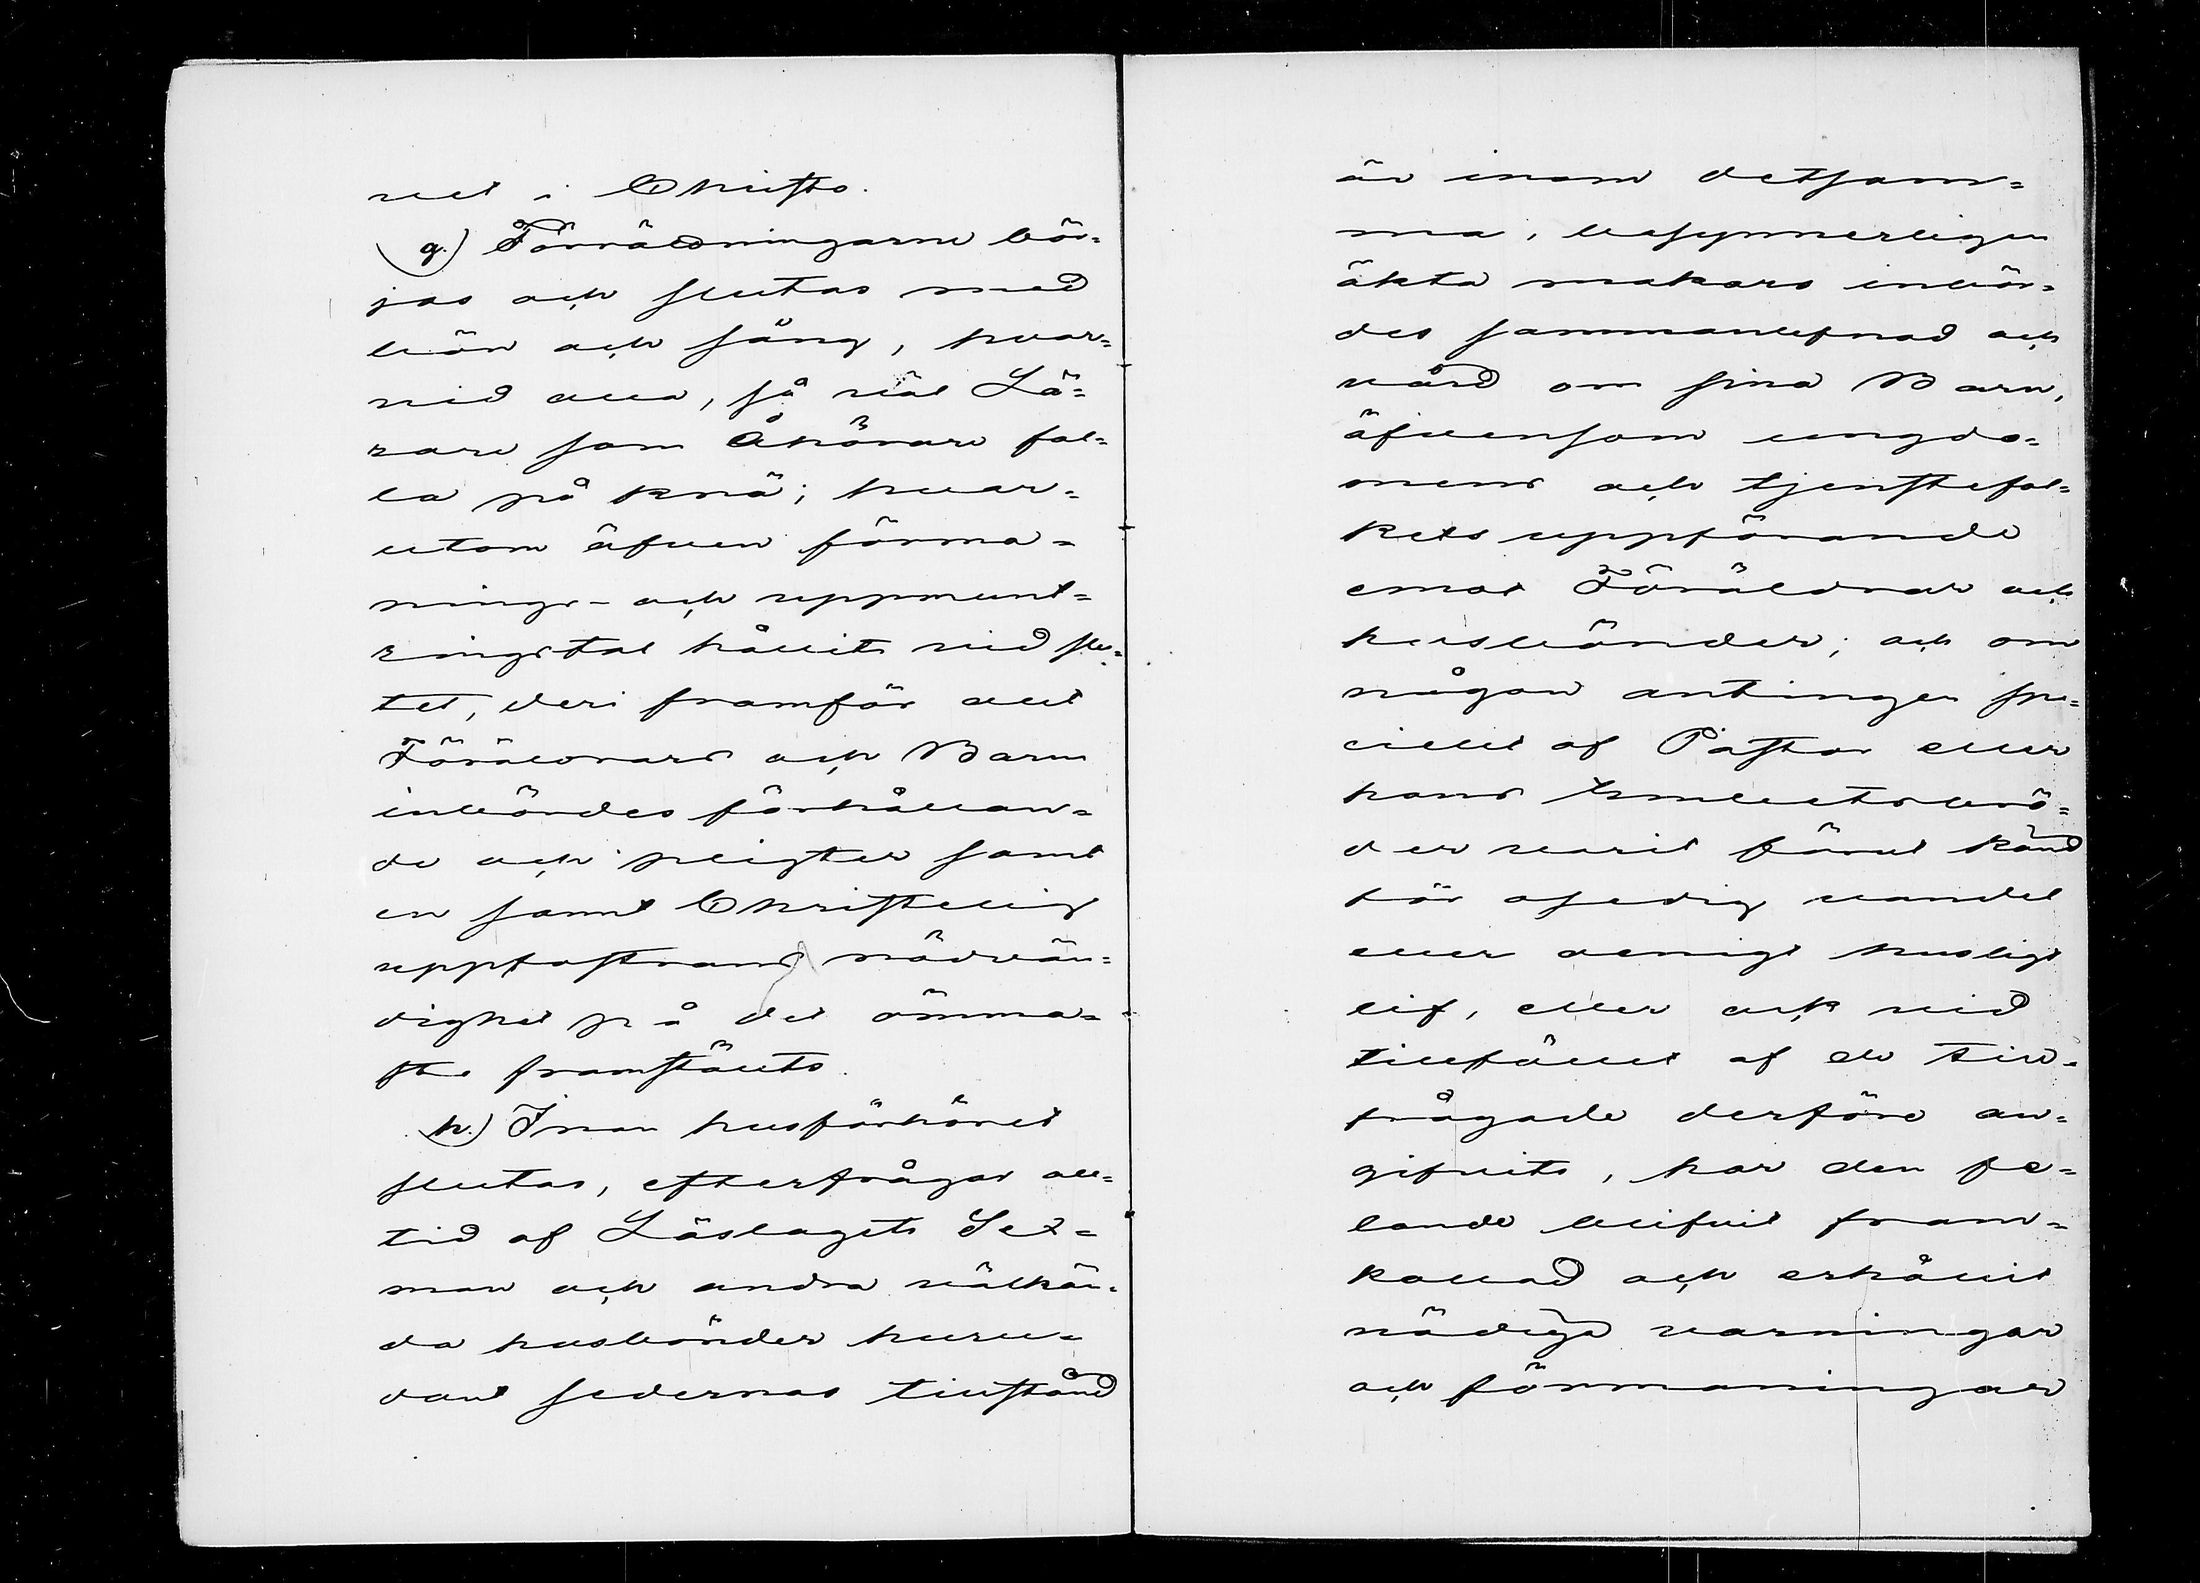 vet i Christo.
g.) Förrättningarne bör=
jas och slutas med
bön och sång, hvar=
vid alla, så väl Lä=
rare som Åhörare fal=
la på knä; hvar=
utom äfven förma=
nings- och uppmunt=
ringstal hållits vid slu=
tet, deri framför allt
Föräldrars och Barns
inbördes förhållan=
de och pligter samt
en sannt Christelig
uppfostrans nödvän=
dighet på det ömma=
ste framstälts.
h.) Innan husförhöret
slutas, efterfrågas all=
tid af Läslagets Sex=
man och andra välkän=
da husbönder huru=
dant sedernas tillstånd
är inom detsam=
ma, besynnerligen
äkta makars inbör=
des sammanlefnad och
vård om sina Barn,
äfvensom ungdo=
mens och tjenstefol=
kets uppförande
emot Föräldrar och
husbönder; och om
någon antingen spe=
ciellt af Pastor eller
hans Embetsbrö=
der varit förut känd
för osedig vandel
eller oenigt husligt
lif, eller ock vid
tillfället af de till=
frågade derföre an=
gifvits, har den fe=
lande blifvit fram=
kallad och erhållit
nödiga varningar
och förmaningar